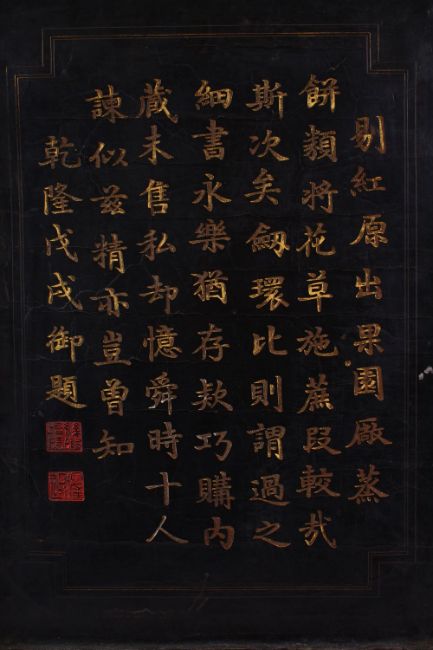 剔紅原出果園厰蒸
餅類將花草施蔗段較㦲
斯次矣劒環比則謂過之
細書永樂猶存欵巧購内
藏未售私却憶舜時十人
諫似茲精亦豈曾知
乾隆戊戌御題